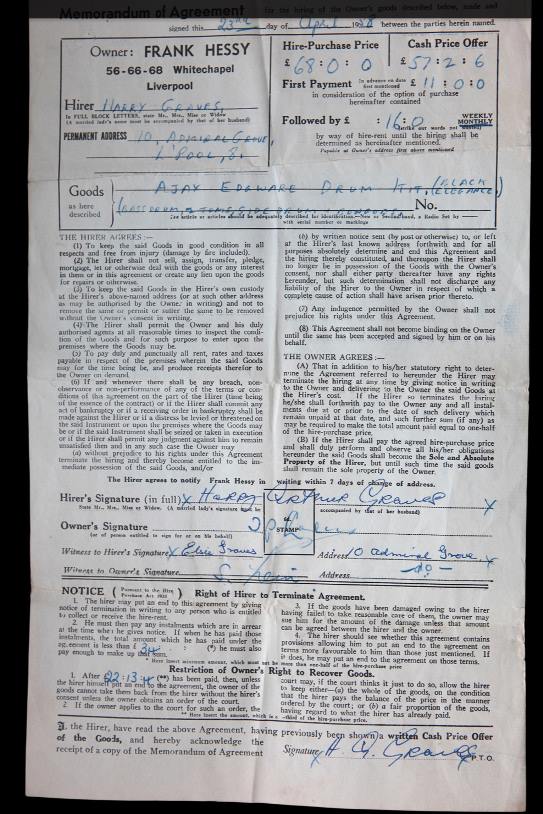 Memorandum of Agreement for the hiring of the Goods described below, made and
signed this 23rd day of April 1958 between the parties herein named.
Owner: FRANK HESSY
56-66-68 Whitechapel
Liverpool
Hirer HARRY GRAVES
In FULL BLOCK LETTERS, State Mr., Mrs., Miss or Widow.
(A married lady's name must be accompanied by that of her husband)
PERMANENT ADDRESS 10, ADMIRAL GROVE,
L'POOL, 8.
Hire-Purchase Price
£ 68:0:0
Cash Price Offer
£ 57:2:6
First Payment In advance on date first mentioned £ 11:0:0
in consideration of the option of purchase
hereinafter contained
Followed by £ :16:0 WEEKLY
MONTHLY
(strike out words not wanted)
by way of hire-rent until the hiring shall be
determined as hereinafter mentioned.
Payable at Owner's address first above mentioned
Goods AJAX EDGWARE DRUM KIT, (BLACK ELEGANCE)
as here
described
No.
THE HIRER AGREES:—
(1) To keep the said Goods in good condition in all
respects and free from injury (damage by fire included).
(2) The Hirer shall not sell, assign, transfer, pledge,
mortgage, let or otherwise deal with the goods or any interest
in them or in this agreement or create any lien upon the goods
for repairs or otherwise.
(3) To keep the said Goods in the Hirer's own custody
at the Hirer's above-named address (or at such other address
as may be authorised by the Owner in writing) and not to
remove the same or permit or suffer the same to be removed
without the Owner's consent in writing.
(4) The Hirer shall permit the Owner and his duly
authorised agents at all reasonable times to inspect the condi-
tion of the Goods and for such purpose to enter upon the
premises where the Goods may be.
(5) To pay duly and punctually all rent, rates and taxes
payable in respect of the premises wherein the said Goods
may for the time being be, and produce receipts therefor to
the Owner on demand.
(6) If and whenever there shall be any breach, non-
observance or non-performance of any of the terms or con-
ditions of this agreement on the part of the Hirer (time being
of the essence of the contract) or if the Hirer shall commit any
act of bankruptcy or if a receiving order in bankruptcy shall be
made against the Hirer or if a distress be levied or threatened on
the said Instrument or upon the premises where the Goods may
be or if the said Instrument shall be seized or taken in execution
or if the Hirer shall permit any judgment against him to remain
unsatisfied then and in any such case the Owner may
(a) without prejudice to his rights under this Agreement
terminate the hiring and thereby become entitled to the im-
mediate possession of the said Goods, and/or
(b) by written notice sent (by post or otherwise) to, or left
at the Hirer's last known address forthwith and for all
purposes absolutely determine and end this Agreement and
the hiring thereby constituted, and thereupon the Hirer shall
no longer be in possession of the Goods with the Owner's
consent, nor shall either party thereafter have any rights
hereunder, but such determination shall not discharge any
liability of the Hirer to the Owner in respect of which a
complete cause of action shall have arisen prior thereto.
(7) Any indulgence permitted by the Owner shall not
prejudice his rights under this Agreement.
(8) This Agreement shall not become binding on the Owner
until the same has been accepted and signed by him or on his
behalf.
THE OWNER AGREES:—
(A) That in addition to his/her statutory right to deter-
mine the Agreement referred to hereunder the Hirer may
terminate the hiring at any time by giving notice in writing
to the Owner and delivering to the Owner the said Goods at
the Hirer's cost. If the Hirer so terminates the hiring
he/she shall forthwith pay to the Owner any and all instal-
ments due at or prior to the date of such delivery which
remain unpaid at that date, and such further sum (if any) as
may be required to make the total amount paid equal to one-half
of the hire-purchase price.
(B) If the Hirer shall pay the agreed hire-purchase price
and shall duly perform and observe all his/her obligations
hereunder the said Goods shall become the Sole and Absolute
Property of the Hirer, but until such time the said goods
shall remain the sole property of the Owner.
The Hirer agrees to notify Frank Hessy in writing within 7 days of change of address.
Hirer's Signature (in full) x Harry Arthur Graves x
State Mr., Mrs., Miss or Widow. (A married lady's signature must be accompanied by that of her husband)
Owner's Signature
(or of person entitled to sign for or on his behalf)
STAMP
Witness to Hirer's Signature x Elsie Graves Address 10 admiral Grove x
Witness to Owner's Signature Address — do —
NOTICE (Pursuant to the Hire Purchase Act 1938) Right of Hirer to Terminate Agreement.
1. The hirer may put an end to this agreement by giving
notice of termination in writing to any person who is entitled
to collect or receive the hire-rent.
2. He must then pay any instalments which are in arrear
at the time when he gives notice. If when he has paid those
instalments, the total amount which he has paid under the
agreement is less than £ 34 (*) he must also
pay enough to make up that sum.
3. If the goods have been damaged owing to the hirer
having failed to take reasonable care of them, the owner may
sue him for the amount of the damage unless that amount
can be agreed between the hirer and the owner.
4. The hirer should see whether this agreement contains
provisions allowing him to put an end to the agreement on
terms more favourable to him than those just mentioned. If
it does, he may put an end to the agreement on those terms.
* Here insert minimum amount, which must not be more than one-half of the hire-purchase price
Restriction of Owner's Right to Recover Goods.
1. After £22:13:4 (**) has been paid, then, unless
the hirer himself put an end to the agreement, the owner of the
goods cannot take them back from the hirer without the hirer's
consent unless the owner obtains an order of the court.
2. If the owner applies to the court for such an order, the
court may, if the court thinks it just to do so, allow the hirer
to keep either—(a) the whole of the goods, on the condition
that the hirer pays the balance of the price in the manner
ordered by the court; or (b) a fair proportion of the goods,
having regard to what the hirer has already paid.
** Here insert the amount, which is a -third of the hire-purchase price.
I, the Hirer, have read the above Agreement, having previously been shown a written Cash Price Offer
of the Goods, and hereby acknowledge the
receipt of a copy of the Memorandum of Agreement
Signature x H. A. Graves
P.T.O.